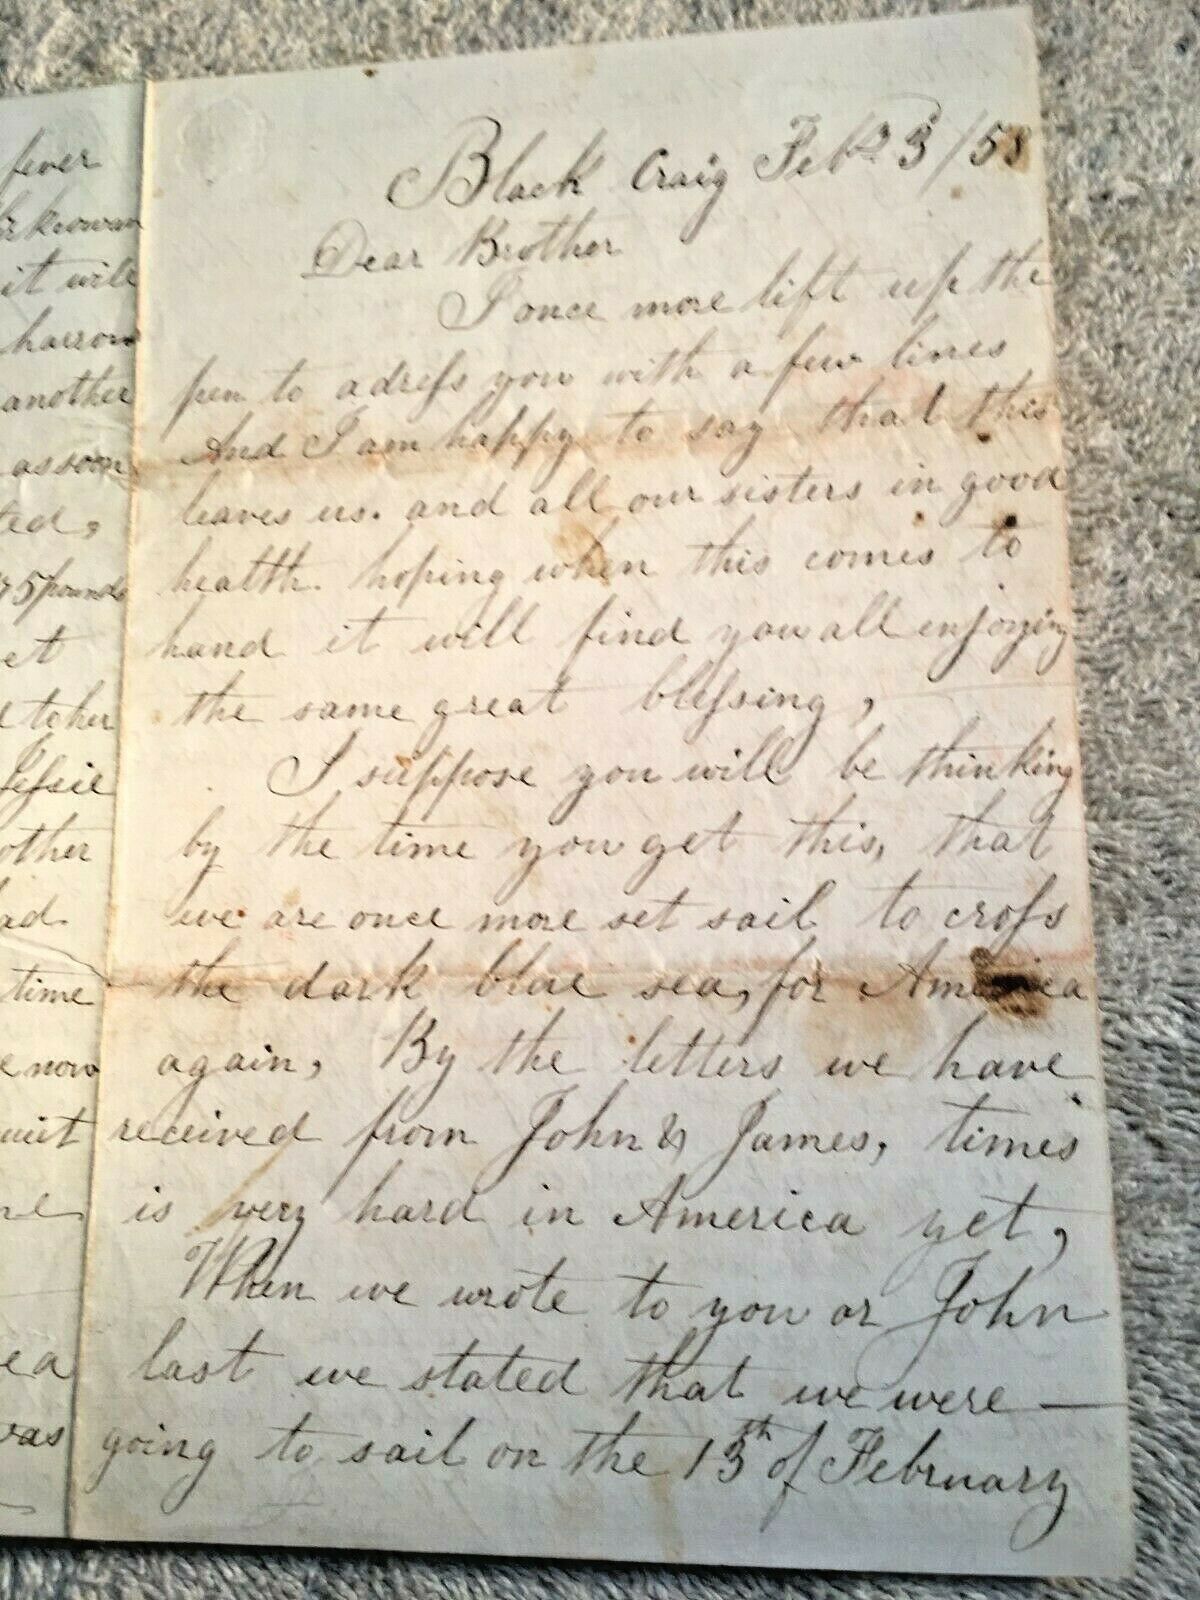 fever
it will
harrow
another
as soon
ted,
5 pounds
et
to her
Jessie
other
ad
time
now
ea
was
Black Craig Feb 3/58
Dear Brother
I once more lift up the
pen to adress you with a few lines
And I am happy to say that this
leaves us. and all our sisters in good
health. hoping when this comes to
hand it will find you all enjoying
the same great blessing,
I suppose you will be thinking
by the time you get this, that
we are once more set sail to cross
the dark blue sea, for America
again, By the letters we have
received from John & James, times
is very hard in America yet,
When we wrote to you or John
last we stated that we were —
going to sail on the 13th of February